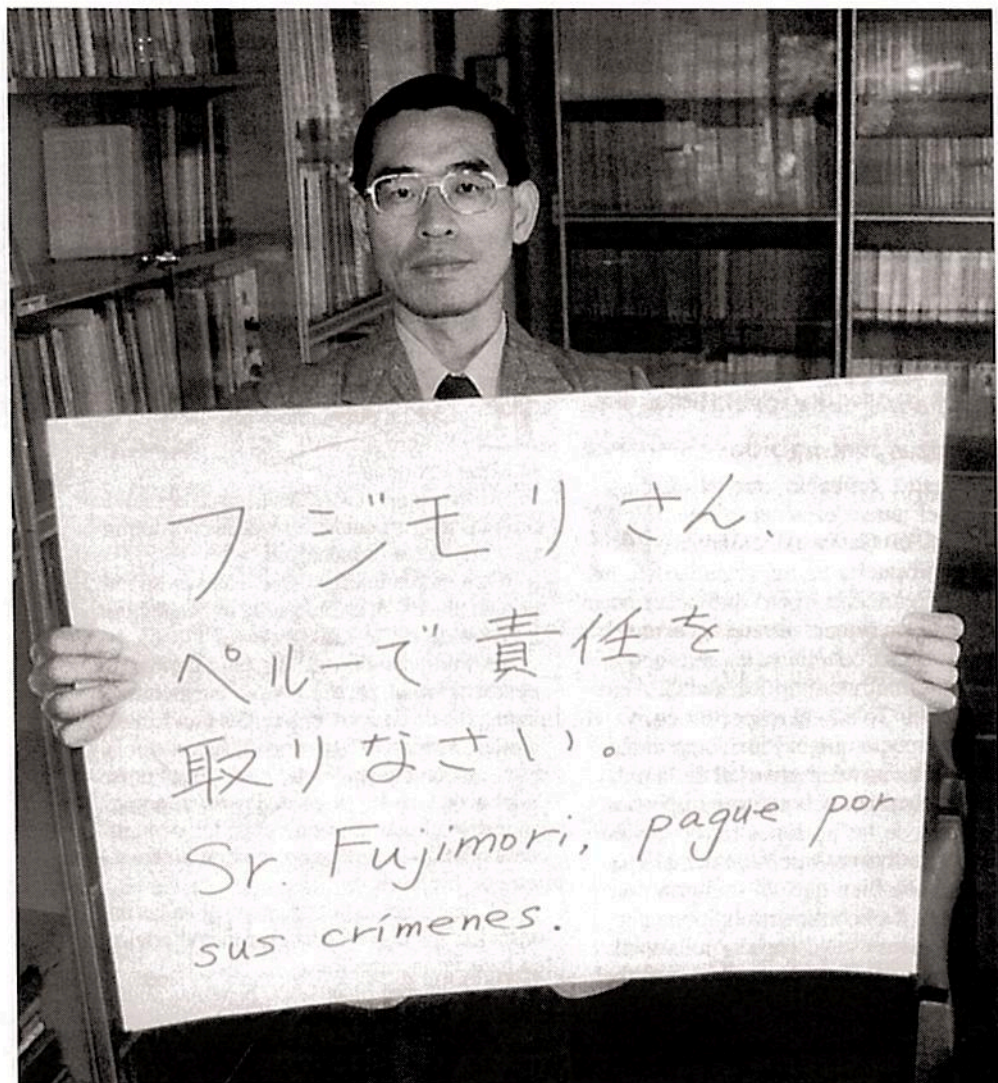 フジモリさん、
ペルーで責任を
取りなさい。
Sr. Fujimori, pague por
sus crímenes.